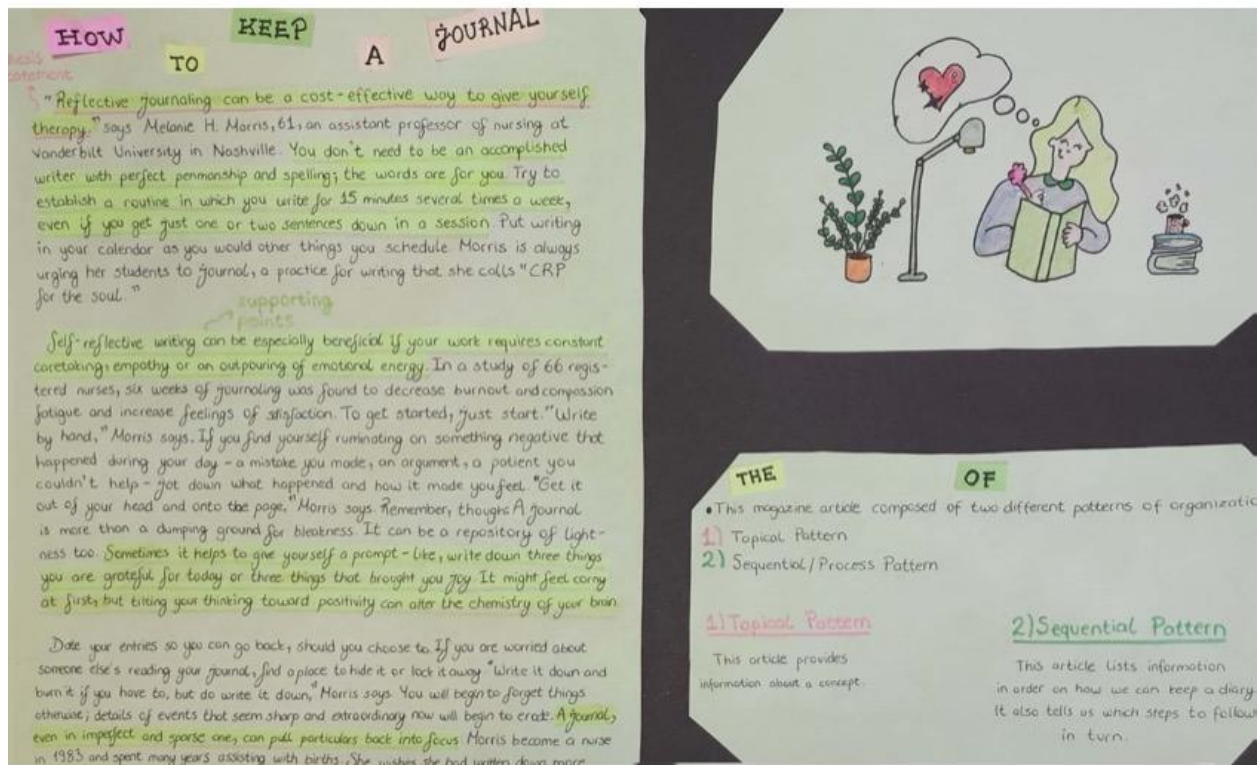 HOW TO KEEP A JOURNAL
"Reflective journaling can be a cost-effective way to give yourself
therapy." says Melanie H. Morris, 61, an assistant professor of nursing at
Vanderbilt University in Nashville. You don't need to be an accomplished
writer with perfect penmanship and spelling; the words are for you. Try to
establish a routine in which you write for 15 minutes several times a week,
even if you get just one or two sentences down in a session. Put writing
in your calendar as you would other things you schedule. Morris is always
urging her students to journal, a practice for writing that she calls "CRP
for the soul."
supporting
points
Self-reflective writing can be especially beneficial if your work requires constant
caretaking, empathy or an outpouring of emotional energy. In a study of 66 regis-
tered nurses, six weeks of journaling was found to decrease burnout and compassion
fatigue and increase feelings of satisfaction. To get started, just start. "Write
by hand," Morris says. If you find yourself ruminating on something negative that
happened during your day - a mistake you made, an argument, a patient you
couldn't help - jot down what happened and how it made you feel. "Get it
out of your head and onto the page," Morris says. Remember, though: A journal
is more than a dumping ground for bleakness. It can be a repository of light-
ness too. Sometimes it helps to give yourself a prompt - like, write down three things
you are grateful for today or three things that brought you joy. It might feel corny
at first, but tilting your thinking toward positivity can alter the chemistry of your brain
Date your entries so you can go back, should you choose to. If you are worried about
someone else's reading your journal, find a place to hide it or lock it away "Write it down and
burn it if you have to, but do write it down," Morris says. You will begin to forget things
otherwise; details of events that seem sharp and extraordinary now will begin to erode. A journal,
even in imperfect and sparse one, can pull particulars back into focus. Morris become a nurse
in 1983 and spent many years assisting with births. She wishes she had written down more
THE OF
•This magazine article composed of two different patterns of organizatio
1) Topical Pattern
2) Sequential/Process Pattern
1) Topical Pattern
This article provides
information about a concept.
2) Sequential Pattern
This article lists information
in order on how we can keep a diary.
It also tells us which steps to follow
in turn.